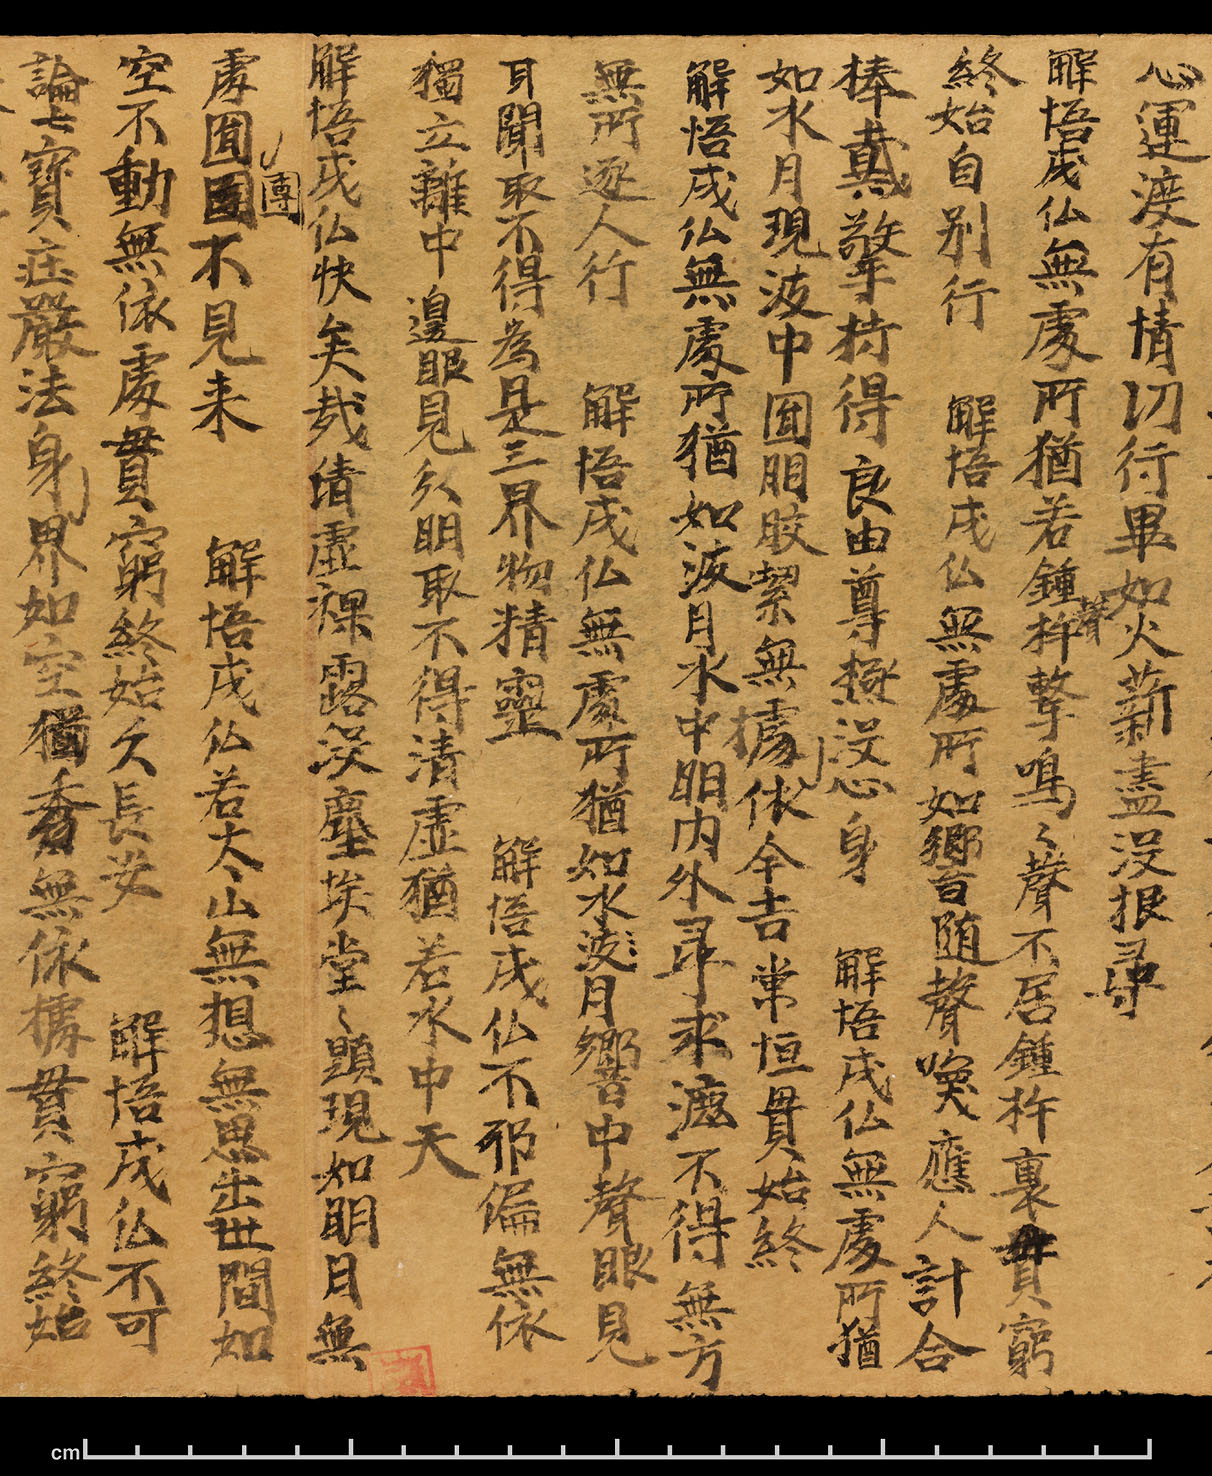 心運渡有情切行畢如火薪盡没根尋
解悟成仏無處所猶若鍾杵聲擊鳴々聲不居鍾杵裏貫窮
終始自别行 解悟成仏無處所如響音随聲喚應人計合
捧戴擎持得良由尊極没忩身 解悟成仏無處所猶
如水月現波中囬明皎絜無據依全吉常恒貫始終
解悟成仏無處所猶如波月水中明内外尋求㴰不得無方
無所逐人行 解悟成仏無處所猶如水波月響中聲眼見
耳聞取不得為是三界物精靈 解悟成仏不邪偏無依
獨立離中邊眼見分明取不得清虚猶若水中天
解悟成仏快矣哉清虚裸露没塵埃堂々顕現如明月無
處囬團不見来 解悟成仏若太山無想無思出世間如
空不動無依處貫窮終始久長安 解悟成仏不可
論七寳庄嚴法身界如空獨秀無依據貫窮終始
cm